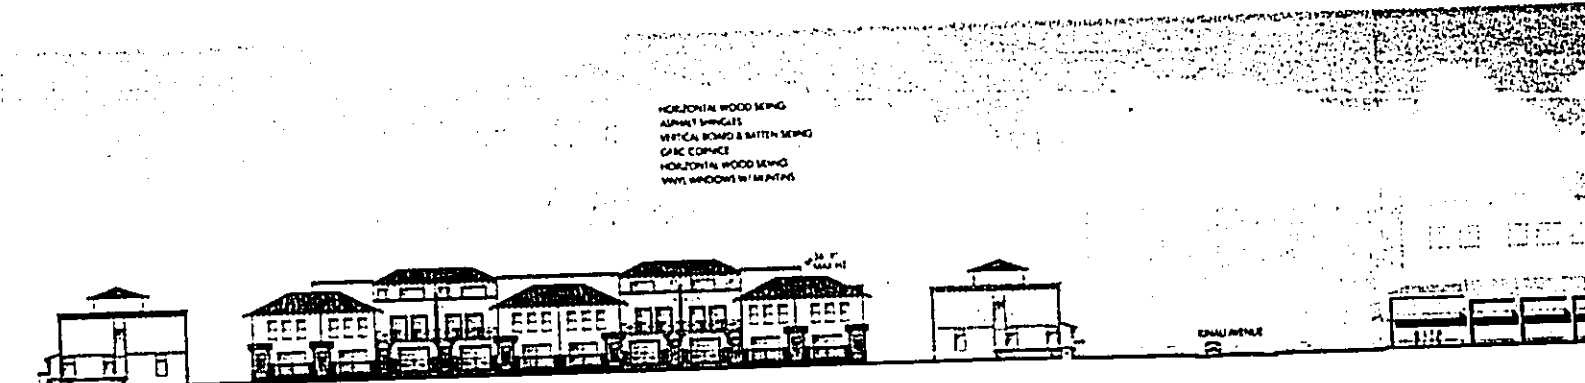 HORIZONTAL WOOD SIDING
ASPHALT SHINGLES
VERTICAL BOARD & BATTEN SIDING
CORNICE
HORIZONTAL WOOD SIDING
VINYL WINDOWS W/ MUNTINS
MAX HT
AVENUE